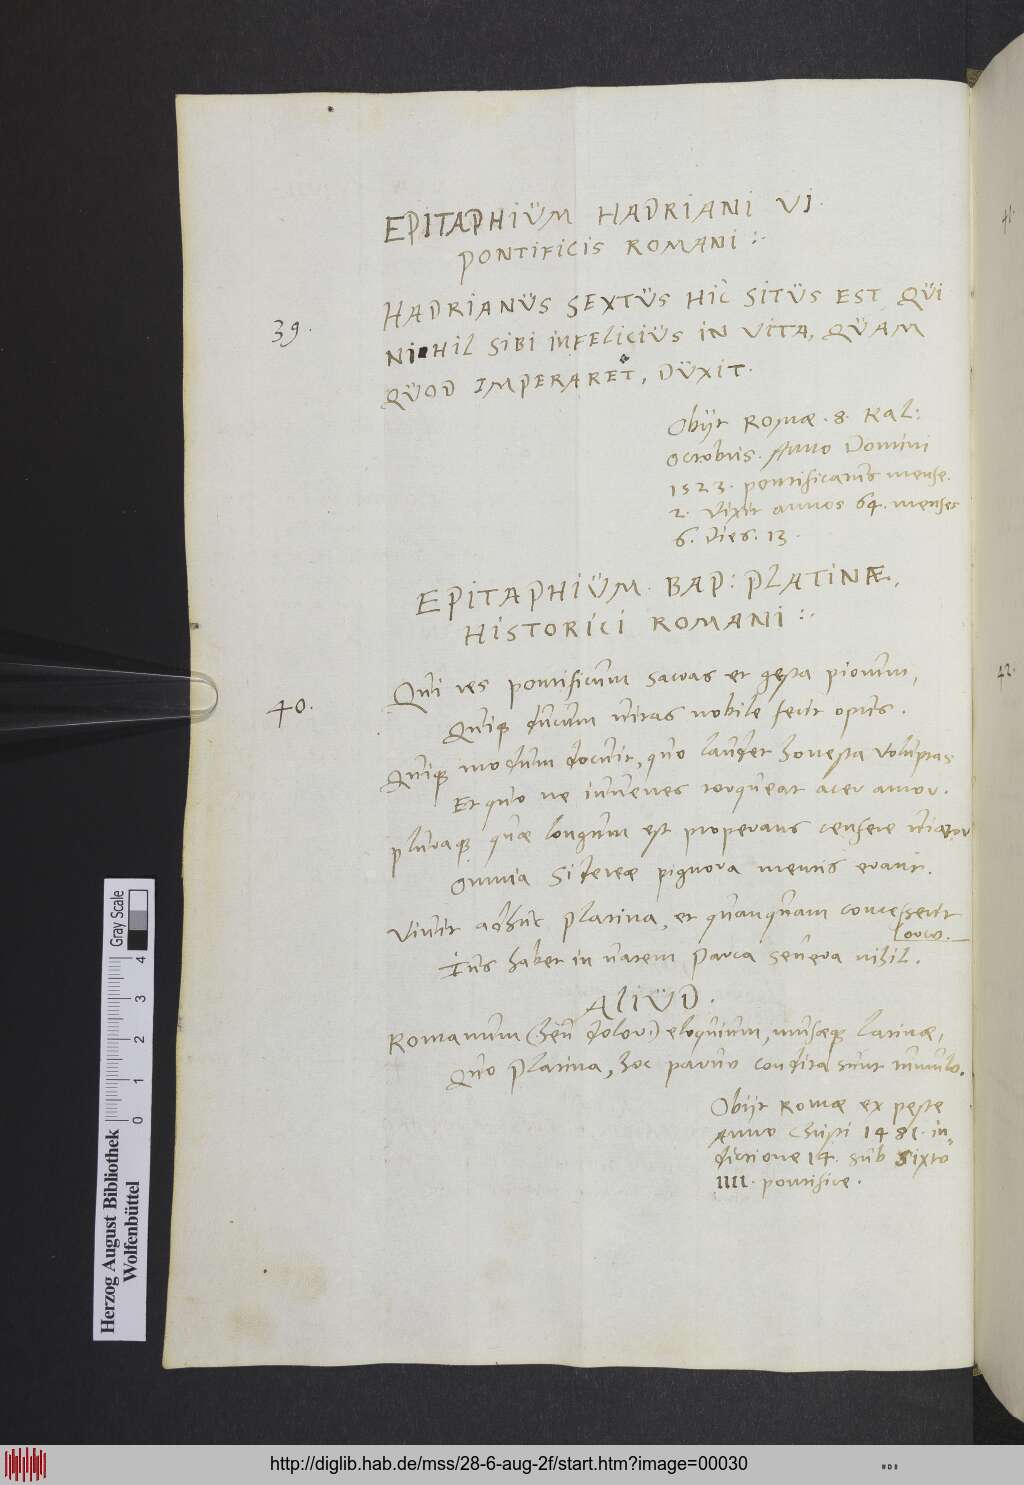 EPITAPHIUM HADRIANI VI.
PONTIFICIS ROMANI :.
39.
HADRIANUS SEXTUS HIC SITUS EST QUI
NIHIL SIBI INFELICIUS IN VITA, QUAM
QUOD IMPERARET, DUXIT.
Obijt Romæ. 8. Kal:
octobris. Anno Domini
1523. pontificatus mense.
2. Vixit annos 64. menses
6. Dies. 13.
EPITAPHIUM. BAP: PLATINÆ,
HISTORICI ROMANI :.
40.
Qui res pontificum sacras et gesta piorum,
Quiq; ducum vitas nobile fecit opus.
Quiq; modum docuit, quo laudet honesta voluptas
Et quo ne iuvenes torqueat acer amor.
pluraq; quæ longum est properans censere viator
Omnia Sidereæ pignora mentis erant.
Vivit adhuc Platina, et quanquam concesserit
orco.
Ius habet in vatem Parca severa nihil.
ALIUD.
Romanum (heu dolor!) eloquium, musæq; latinæ,
Quo Platina, hoc parvo condita sunt tumulo.
Obijt Romæ ex peste
Anno Christi 1481. in=
dictione 14. sub Sixto
IIII. pontifice.
41.
42.
Herzog August Bibliothek
Wolfenbüttel
0 1 2 3 4
Gray Scale
http://diglib.hab.de/mss/28-6-aug-2f/start.htm?image=00030